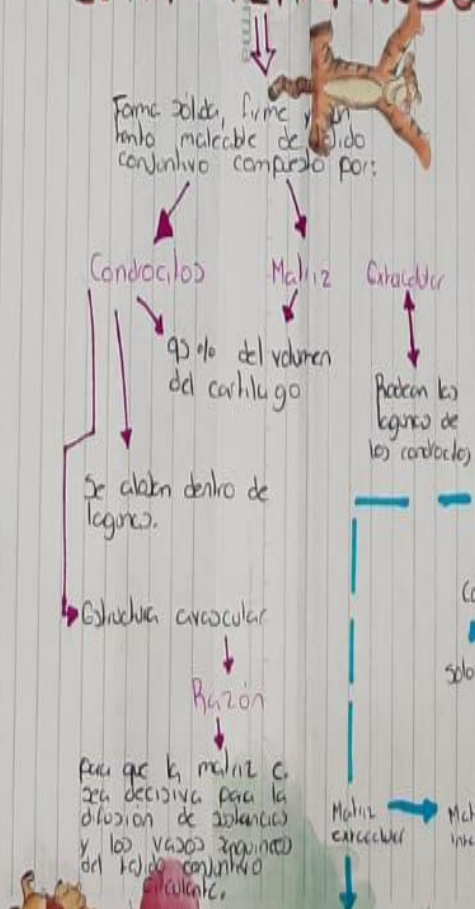 Forma sólida, firme y un
tanto maleable de tejido
conjuntivo compuesto por:
Condrocitos
Matriz Extracelular
95% del volumen
del cartilago
Rodean las
lagunas de
los condrocitos
Se alojan dentro de
lagunas.
Estructura avascular
Razón
para que la matriz E.
sea decisiva para la
difusion de sustancias
y los vasos sanguineos
del tejido conjuntivo
circulante.
solo
Matriz
extracelular